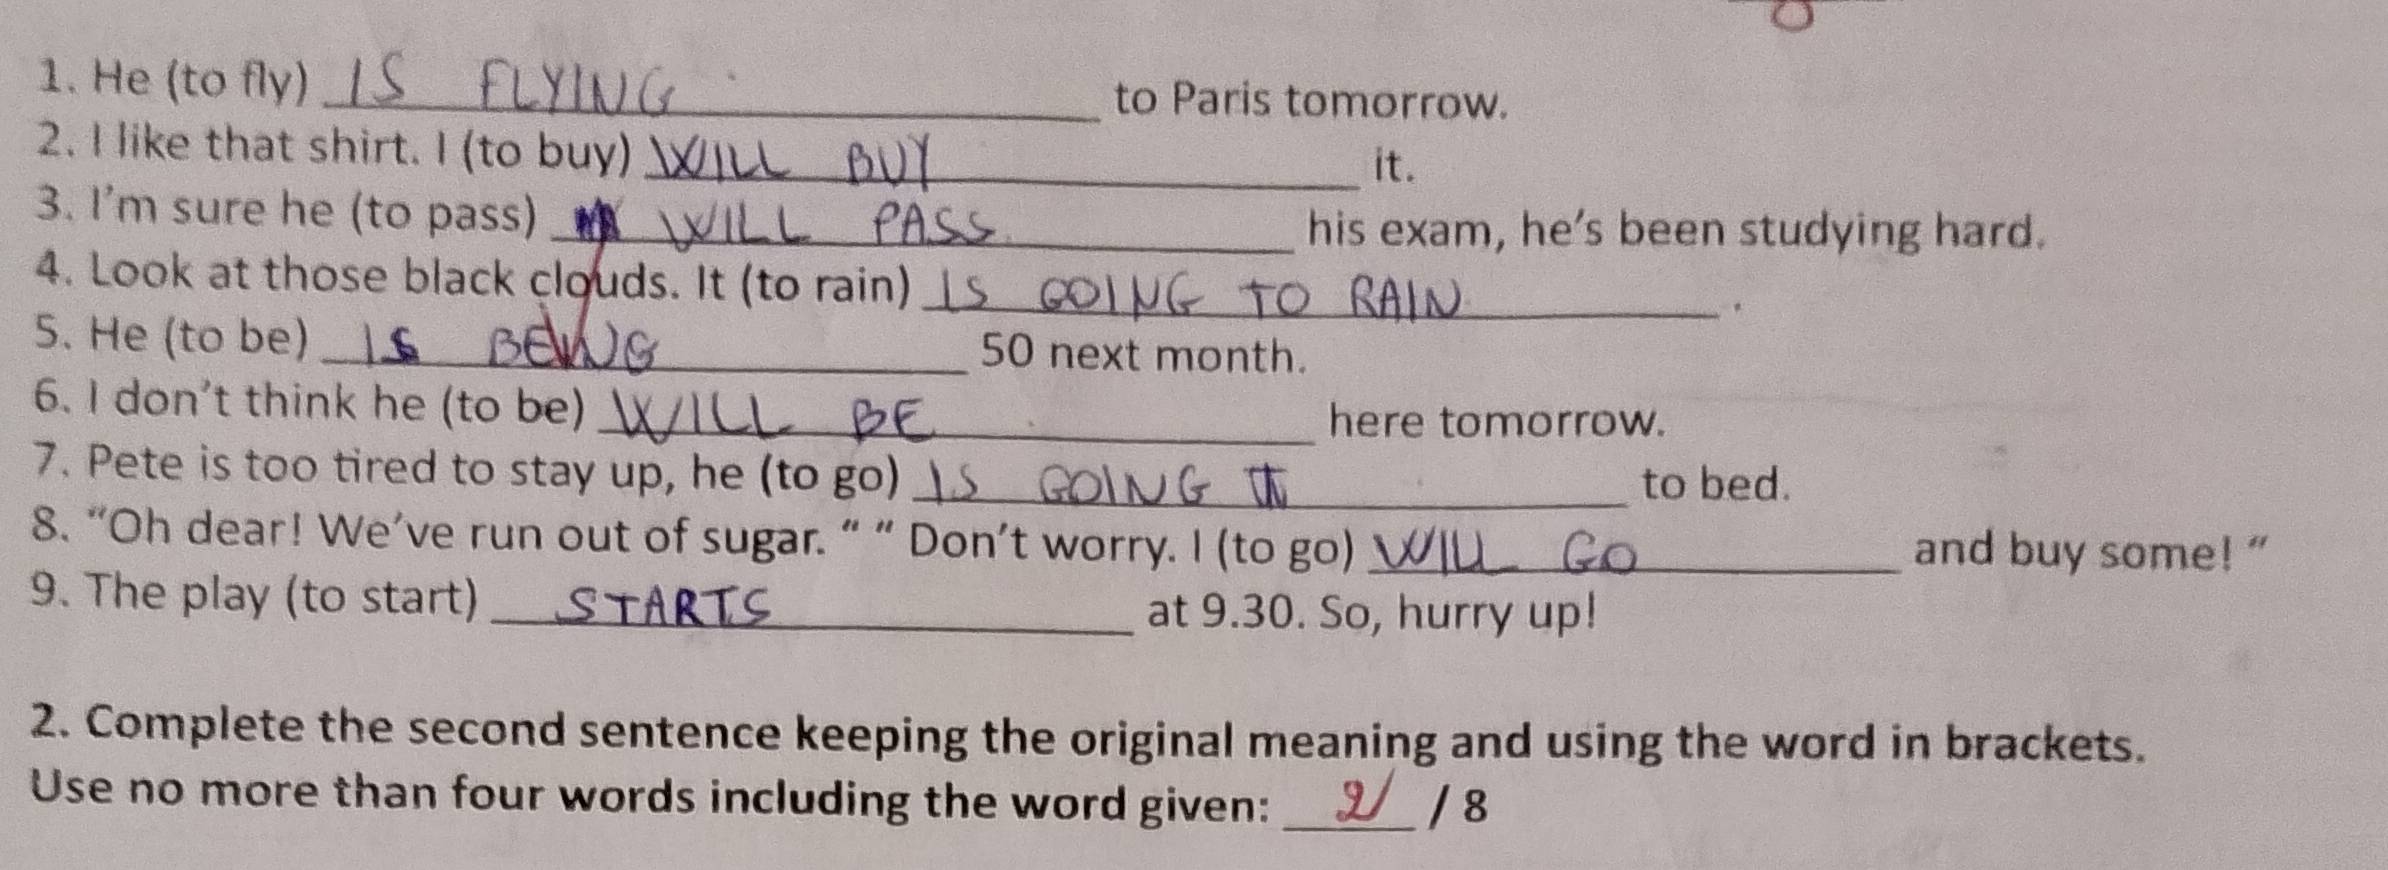 1. He (to fly) IS FLYING to Paris tomorrow.
2. I like that shirt. I (to buy) WILL BUY it.
3. I'm sure he (to pass) WILL PASS his exam, he's been studying hard.
4. Look at those black clouds. It (to rain) IS GOING TO RAIN.
5. He (to be) IS BEING 50 next month.
6. I don't think he (to be) WILL BE here tomorrow.
7. Pete is too tired to stay up, he (to go) IS GOING to bed.
8. "Oh dear! We've run out of sugar. " " Don't worry. I (to go) WILL GO and buy some! "
9. The play (to start) STARTS at 9.30. So, hurry up!
2. Complete the second sentence keeping the original meaning and using the word in brackets.
Use no more than four words including the word given: 2 / 8